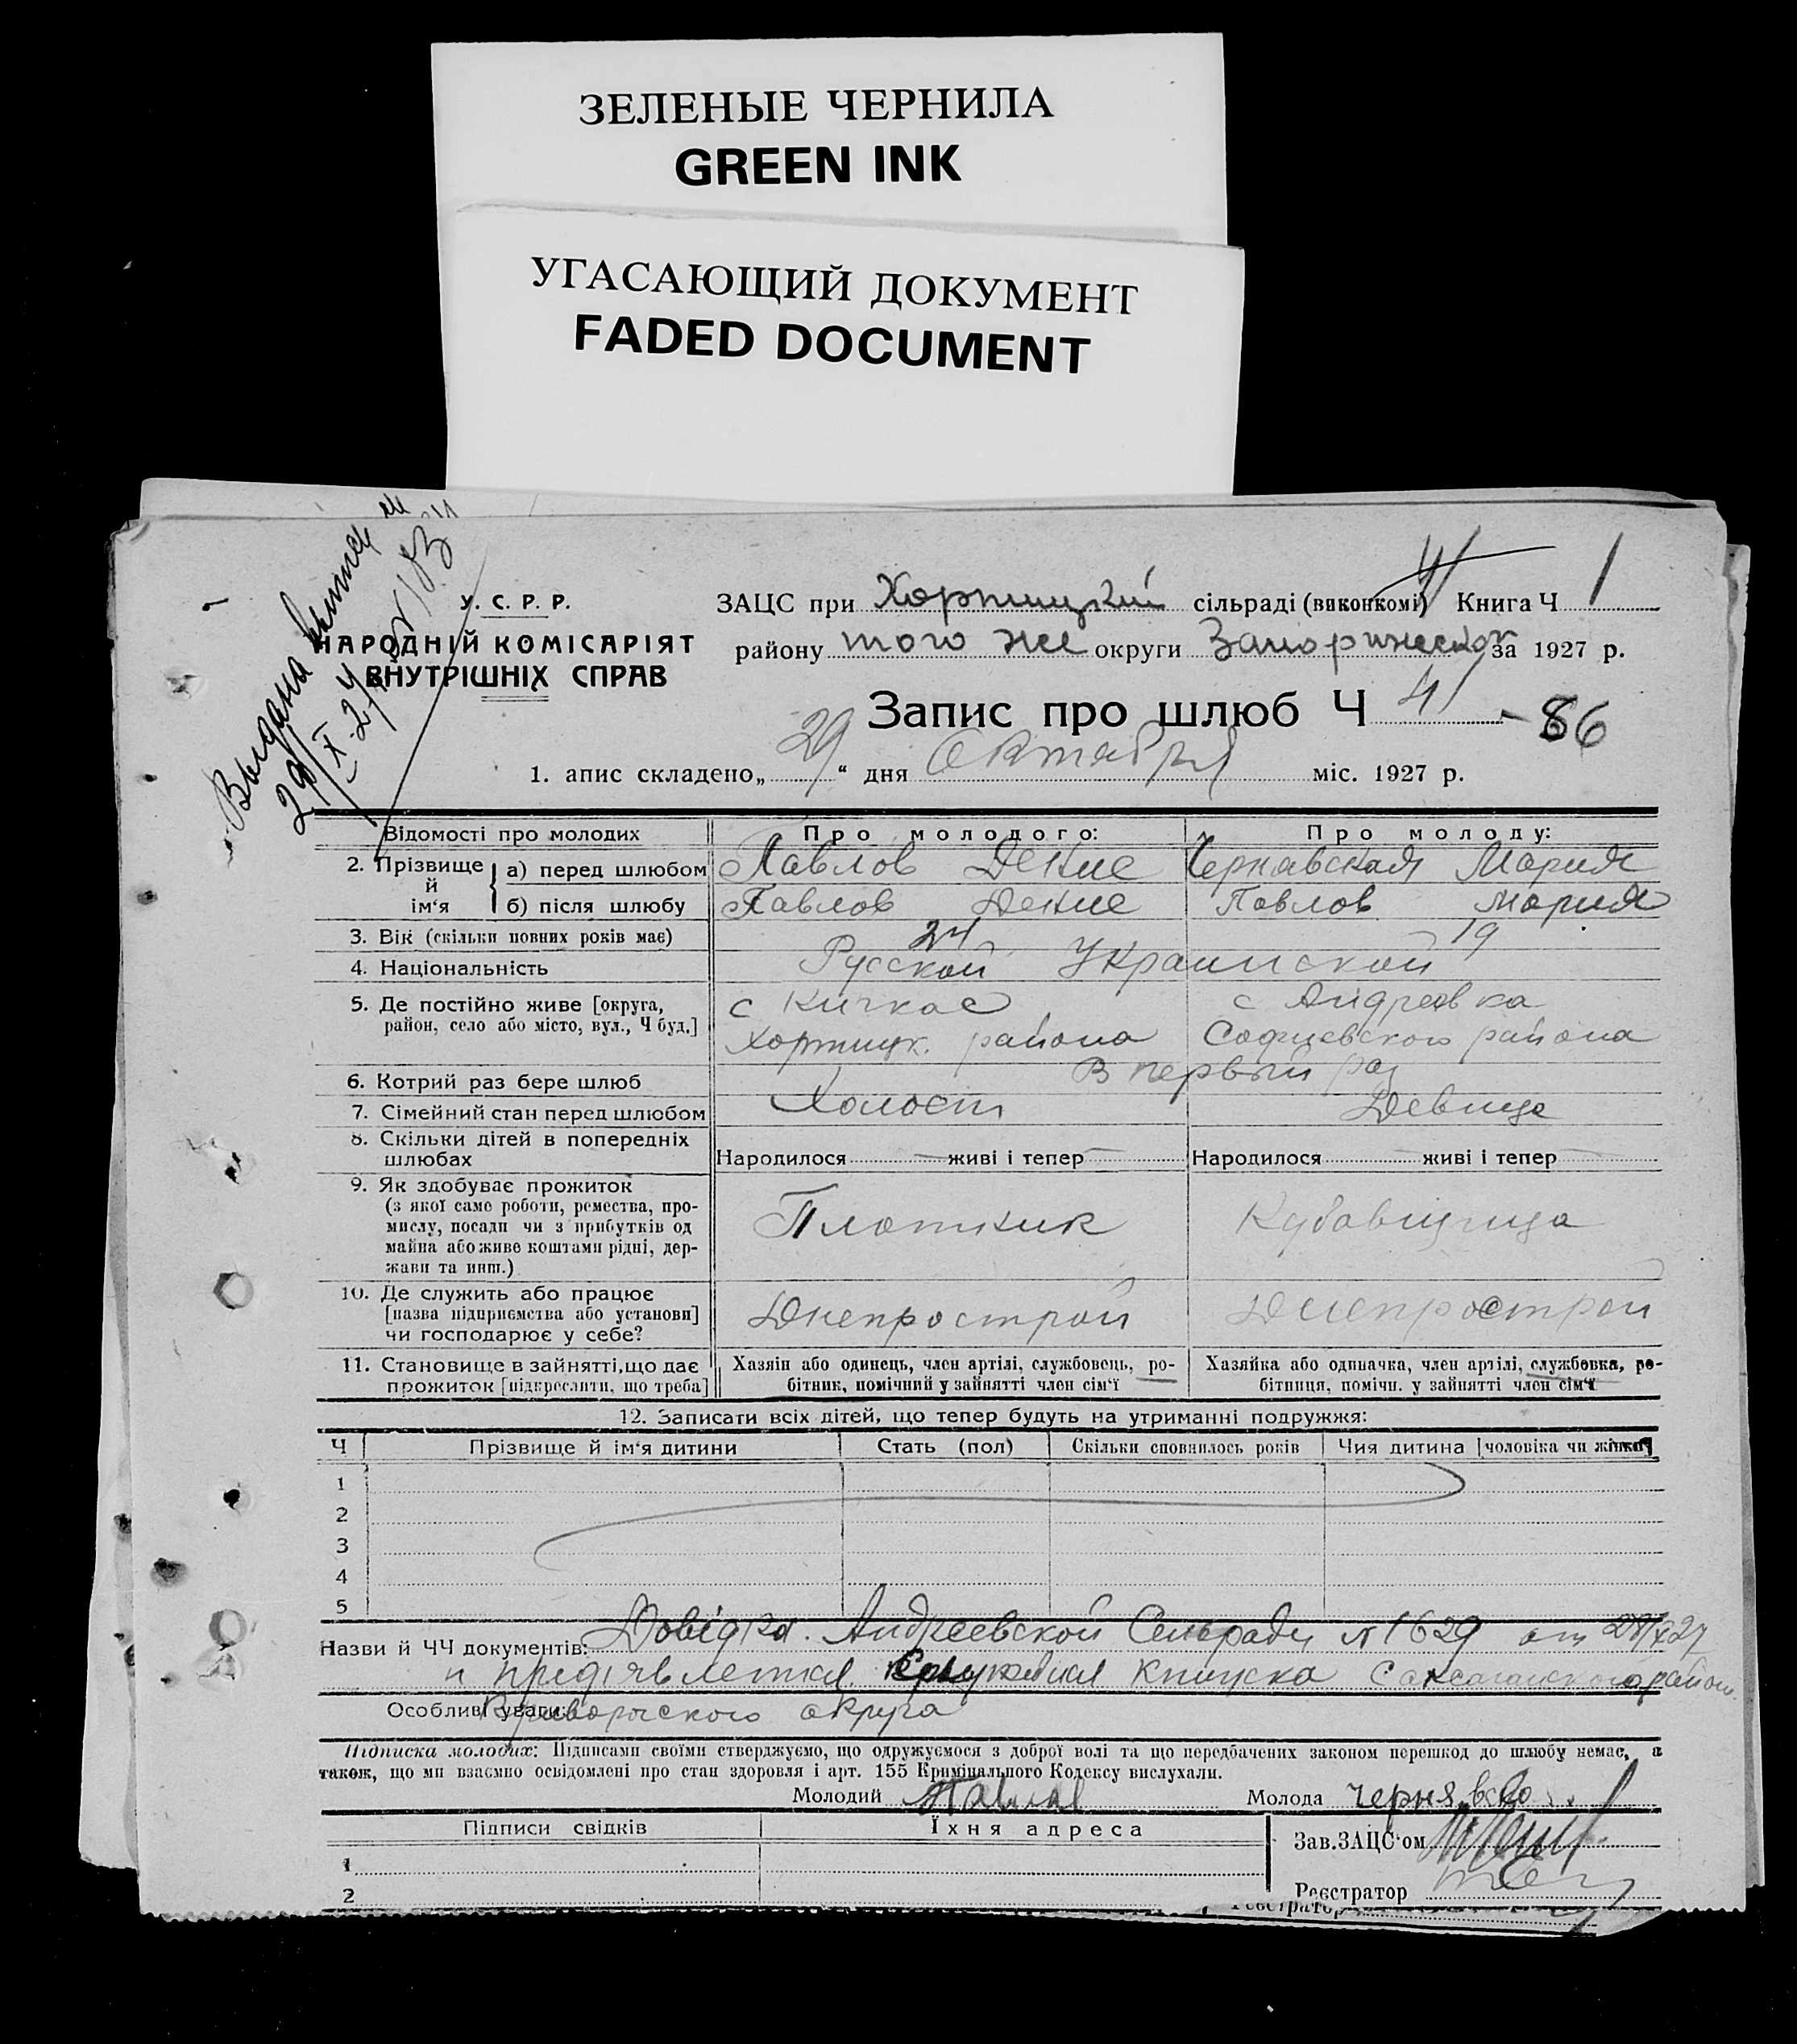 ЗЕЛЕНЫЕ ЧЕРНИЛА
GREEN INK
УГАСАЮЩИЙ ДОКУМЕНТ
FADED DOCUMENT
Выдана
29/X-27
У. С. Р. Р.
НАРОДНІЙ КОМІСАРІЯТ
ВНУТРІШНІХ СПРАВ
ЗАЦС при Хортицкий сільраді (виконкомі) 41 Книга Ч 1
району того же округи за 1927 р.
Запис про шлюб Ч 41 - 86
1. апис складено „ 29 “ дня Октября міс. 1927 р.
Відомості про молодих Про молодого: Про молоду:
2. Прізвище й ім‘я а) перед шлюбом Павлов Денис Чернавская Мария
б) після шлюбу Павлов Денис Павлов Мария
3. Вік (скільки повних років має) 24 19
4. Національність Русской Украинской
5. Де постійно живе [округа, с Кичкас с Андреевка
район, село або місто, вул., Ч буд.] Хортицк. района Софиевского района
6. Котрий раз бере шлюб В первый раз
7. Сімейний стан перед шлюбом Холост Девица
8. Скільки дітей в попередніх
шлюбах Народилося живі і тепер Народилося живі і тепер
9. Як здобуває прожиток
(з якої саме роботи, ремества, про-
мислу, посади чи з прибутків од Плотник
майна або живе коштами рідні, дер-
жави та инш.)
10. Де служить або працює
[назва підприємства або установи] Днепрострой Днепрострой
чи господарює у себе?
11. Становище в зайнятті, що дає Хазяін або одинець, член артілі, службовець, ро- Хазяйка або одиначка, член артілі, службовка, ро-
прожиток [підкреслити, що треба] бітник, помічний у зайнятті член сім‘ї бітниця, помічн. у зайнятті член сім‘ї
12. Записати всіх дітей, що тепер будуть на утриманні подружжя:
Ч Прізвище й ім‘я дитини Стать (пол) Скільки сповнилось років Чия дитина [чоловіка чи жінки]
1
2
3
4
5
Назви й ЧЧ документів: Довідка Андреевской Сельради № 1629 от 28/X27
и книжка Саксаганского район.
Особливі уваги: Криворожского округа
Підписка молодих: Підписами своїми стверджуємо, що одружуємося з доброї волі та що передбачених законом перешкод до шлюбу немає, а
також, що ми взаємно освідомлені про стан здоровля і арт. 155 Кримінального Кодексу вислухали.
Молодий Павлов Молода
Підписи свідків Їхня адреса Зав.ЗАЦС‘ом
1
2 Реєстратор
Реєстратор